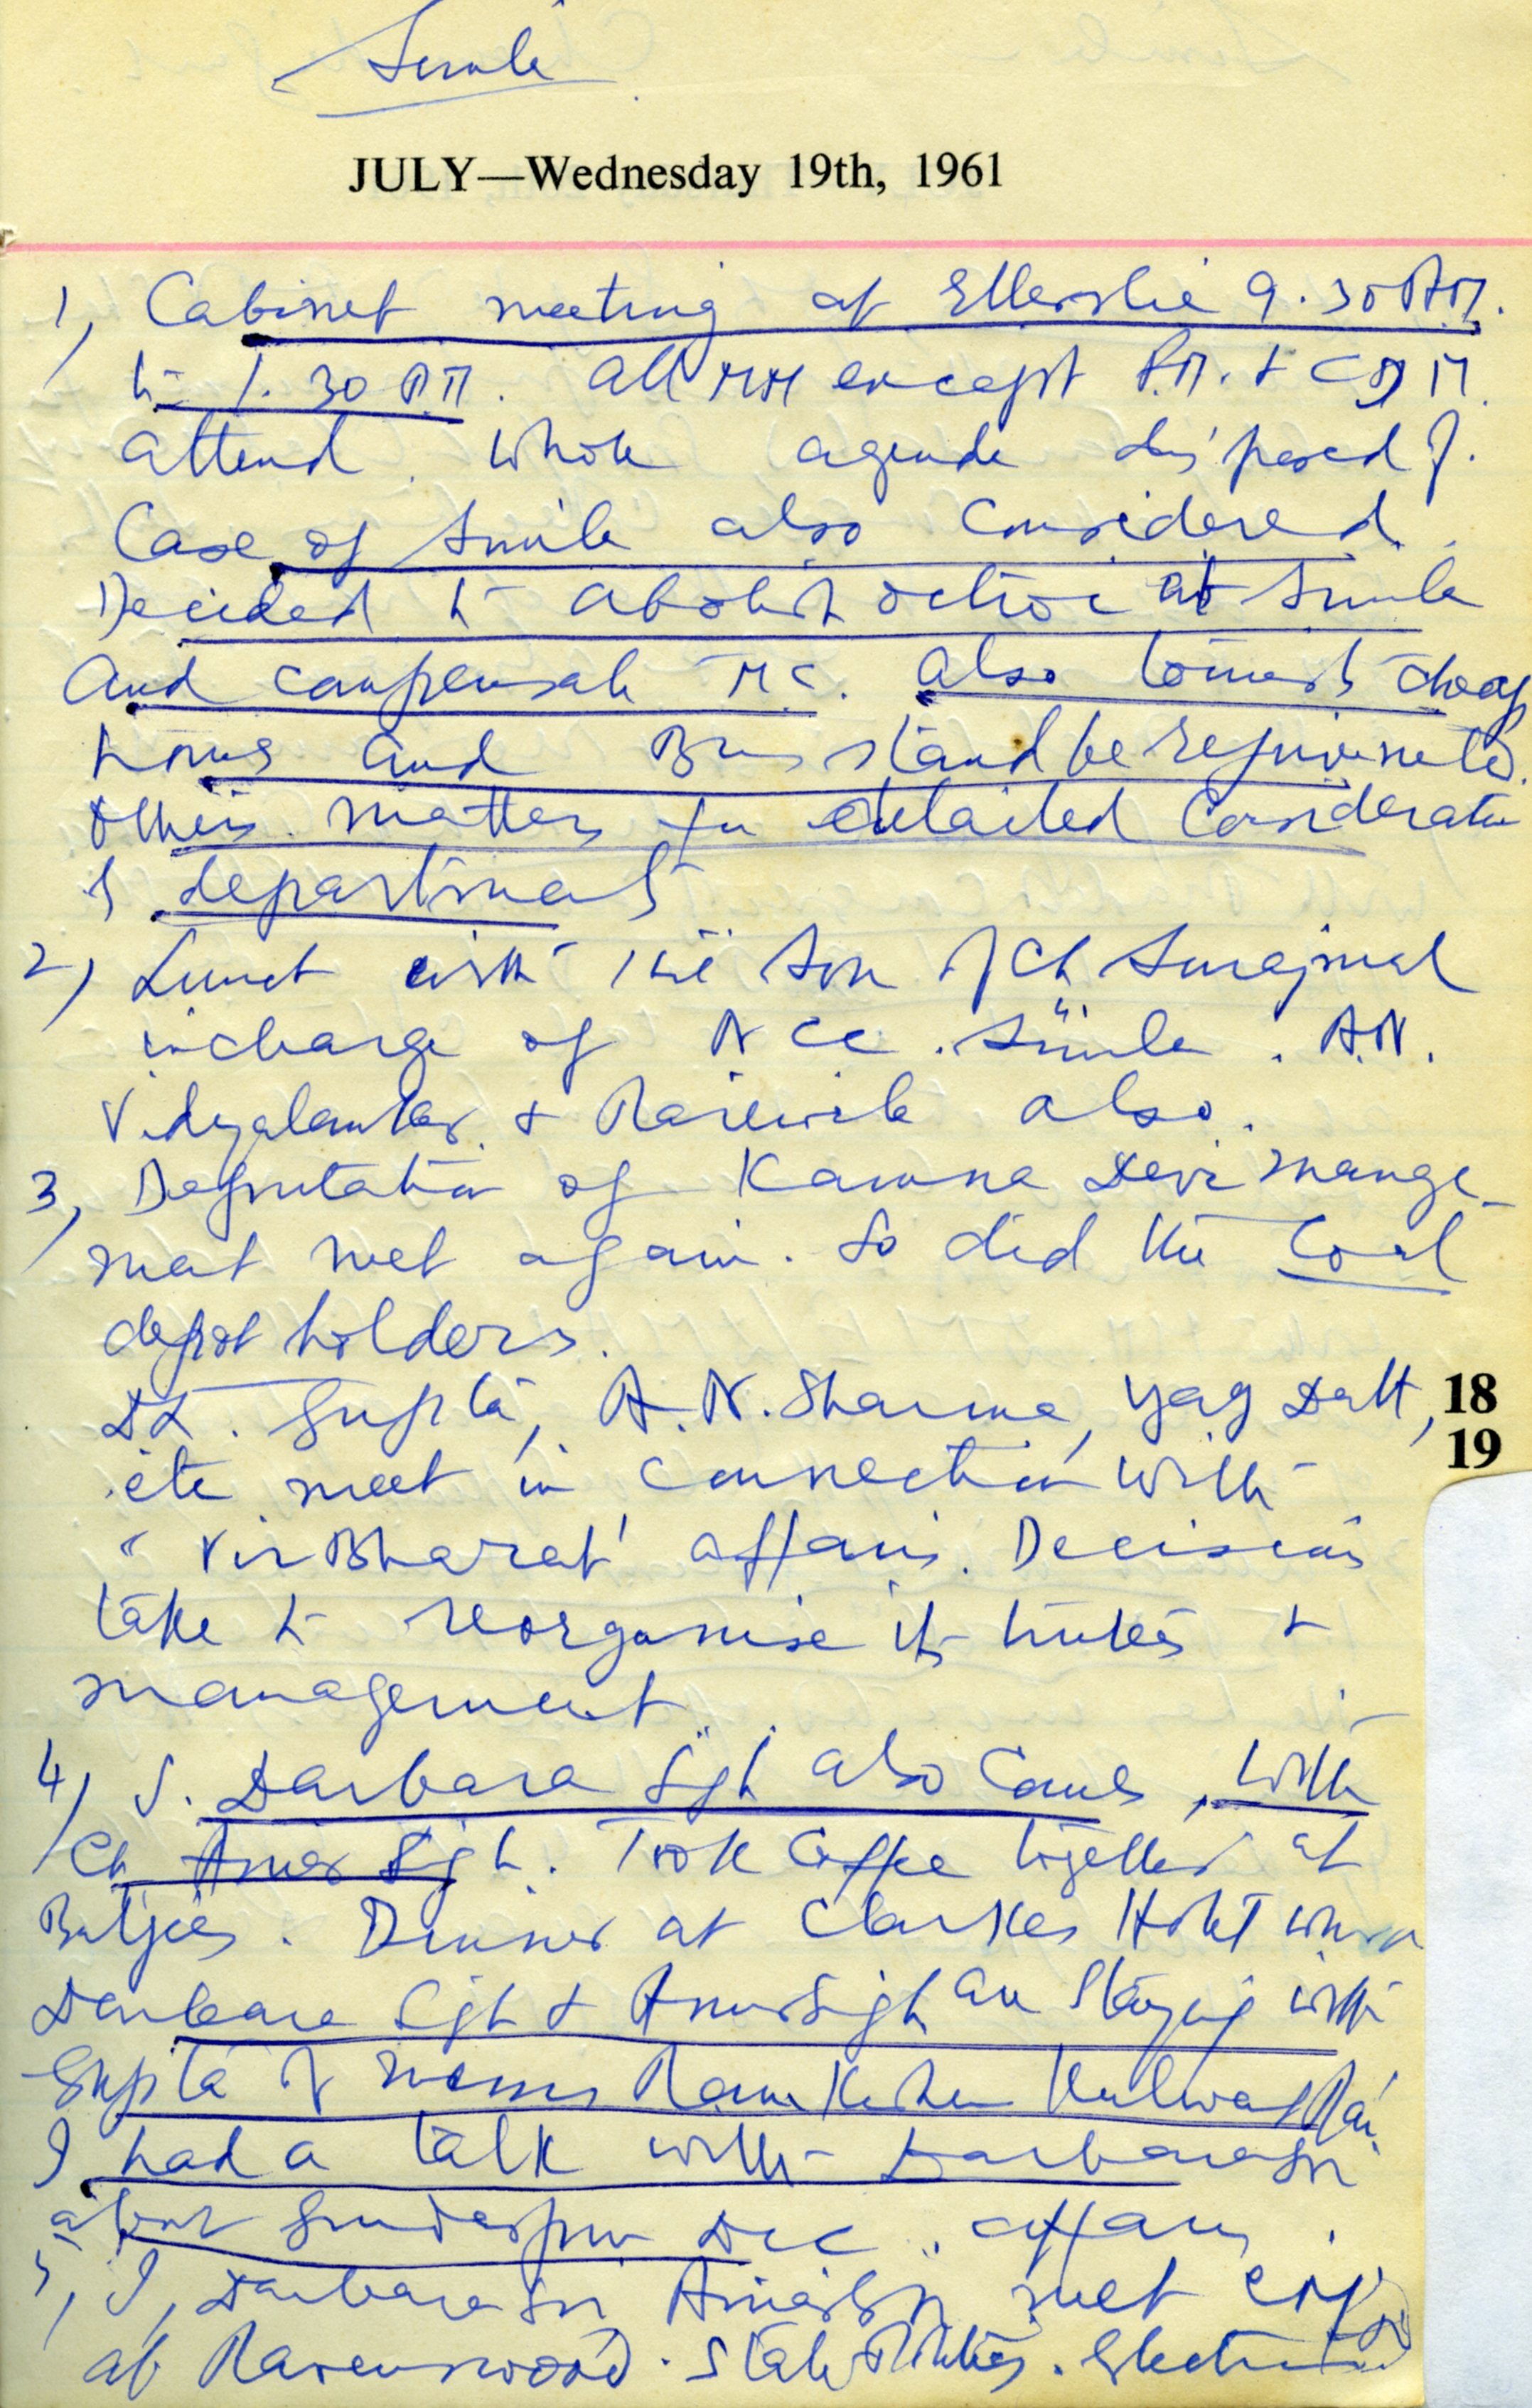 Simla
JULY—Wednesday 19th, 1961
1, Cabinet meeting at Ellerslie 9.30 A.M.
to 1.30 P.M. All MM except P.M. +
attend. Whole agenda disposed of.
Case of Simla also considered.
Decided to abolish octroi at Simla
and compensate M.C. Also tourists cheap
homes and Bus stand be
others matters for detailed consideration
of department
2) Lunch with the son of Ch Surajmal
incharge of NCC. Simla. A.N.
Vidyalankar & Rarewala also.
3, Deputation of Kamna Devi mange-
ment met again. So did the Coal
depot holders.
D.D. Gupta, A.N. Sharma, Yag Datt,
18
19
etc meet in connection with
"Vir Bharat' affairs. Decisions
take to reorganise its trustees &
management
4) S. Darbara Sgh also came, with
Ch Amar Sigh. Took Coffee together at
Baljees. Dinner at Clarkes Hotel where
Darbara Sgh & Amar Sigh are staying with
Gupta of Messrs Ram Kishen Kulwant Rai.
I had a talk with Darbara Sn
about Gurdaspur DCC. affairs.
5, I, Darbara Sn Amar Sn met CM
at Ravenswood. State Politics.